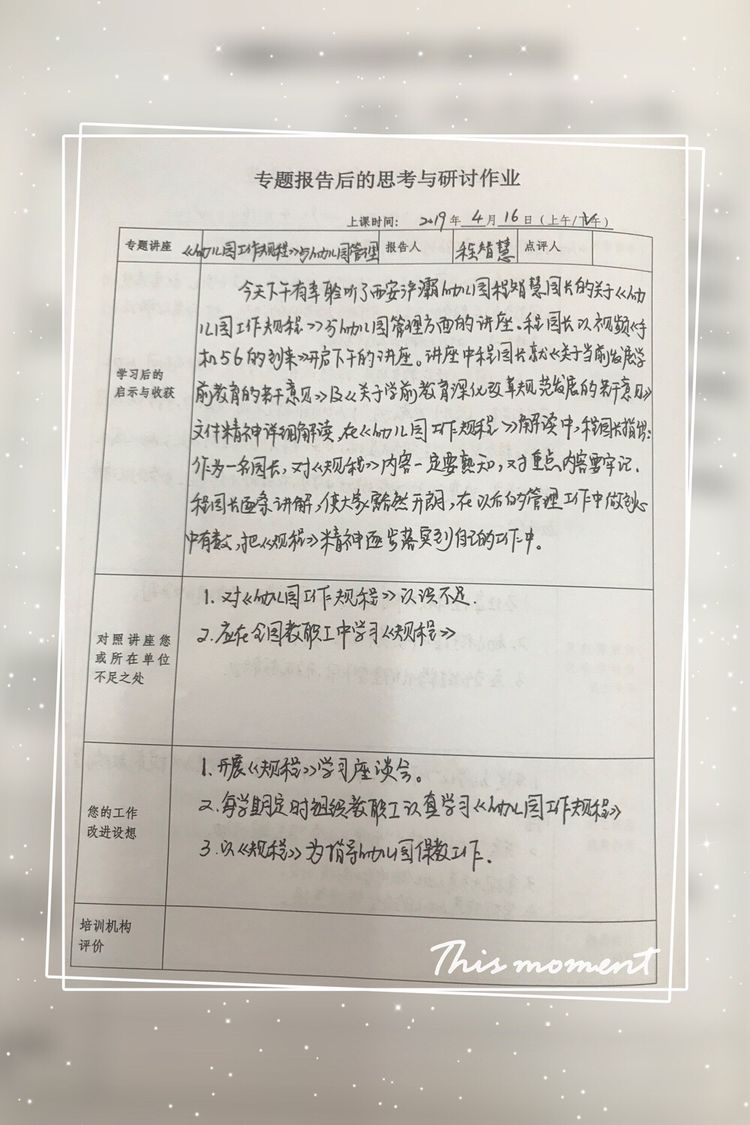 专题报告后的思考与研讨作业
上课时间: 2019年 4月 16日(上午/下午)
专题讲座 《幼儿园工作规程》与幼儿园管理 报告人 程智慧 点评人
学习后的
启示与收获
今天下午有幸聆听了西安浐灞幼儿园程智慧园长的关于《幼
儿园工作规程》与幼儿园管理方面的讲座。程园长以视频《手
机5G的到来》开启下午的讲座。讲座中程园长就《关于当前发展学
前教育的若干意见》及《关于学前教育深化改革规范发展的若干意见》
文件精神详细解读,在《幼儿园工作规程》解读中,程园长指出:
作为一名园长,对《规程》内容一定要熟知,对重点内容要牢记.
程园长逐条讲解,使大家豁然开朗,在以后的管理工作中做到心
中有数,把《规程》精神逐步落实到自己的工作中。
对照讲座您
或所在单位
不足之处
1. 对《幼儿园工作规程》认识不足.
2. 应在全园教职工中学习《规程》
您的工作
改进设想
1. 开展《规程》学习座谈会。
2. 每学期定时组织教职工认真学习《幼儿园工作规程》
3. 以《规程》为指导幼儿园保教工作.
培训机构
评价
This moment